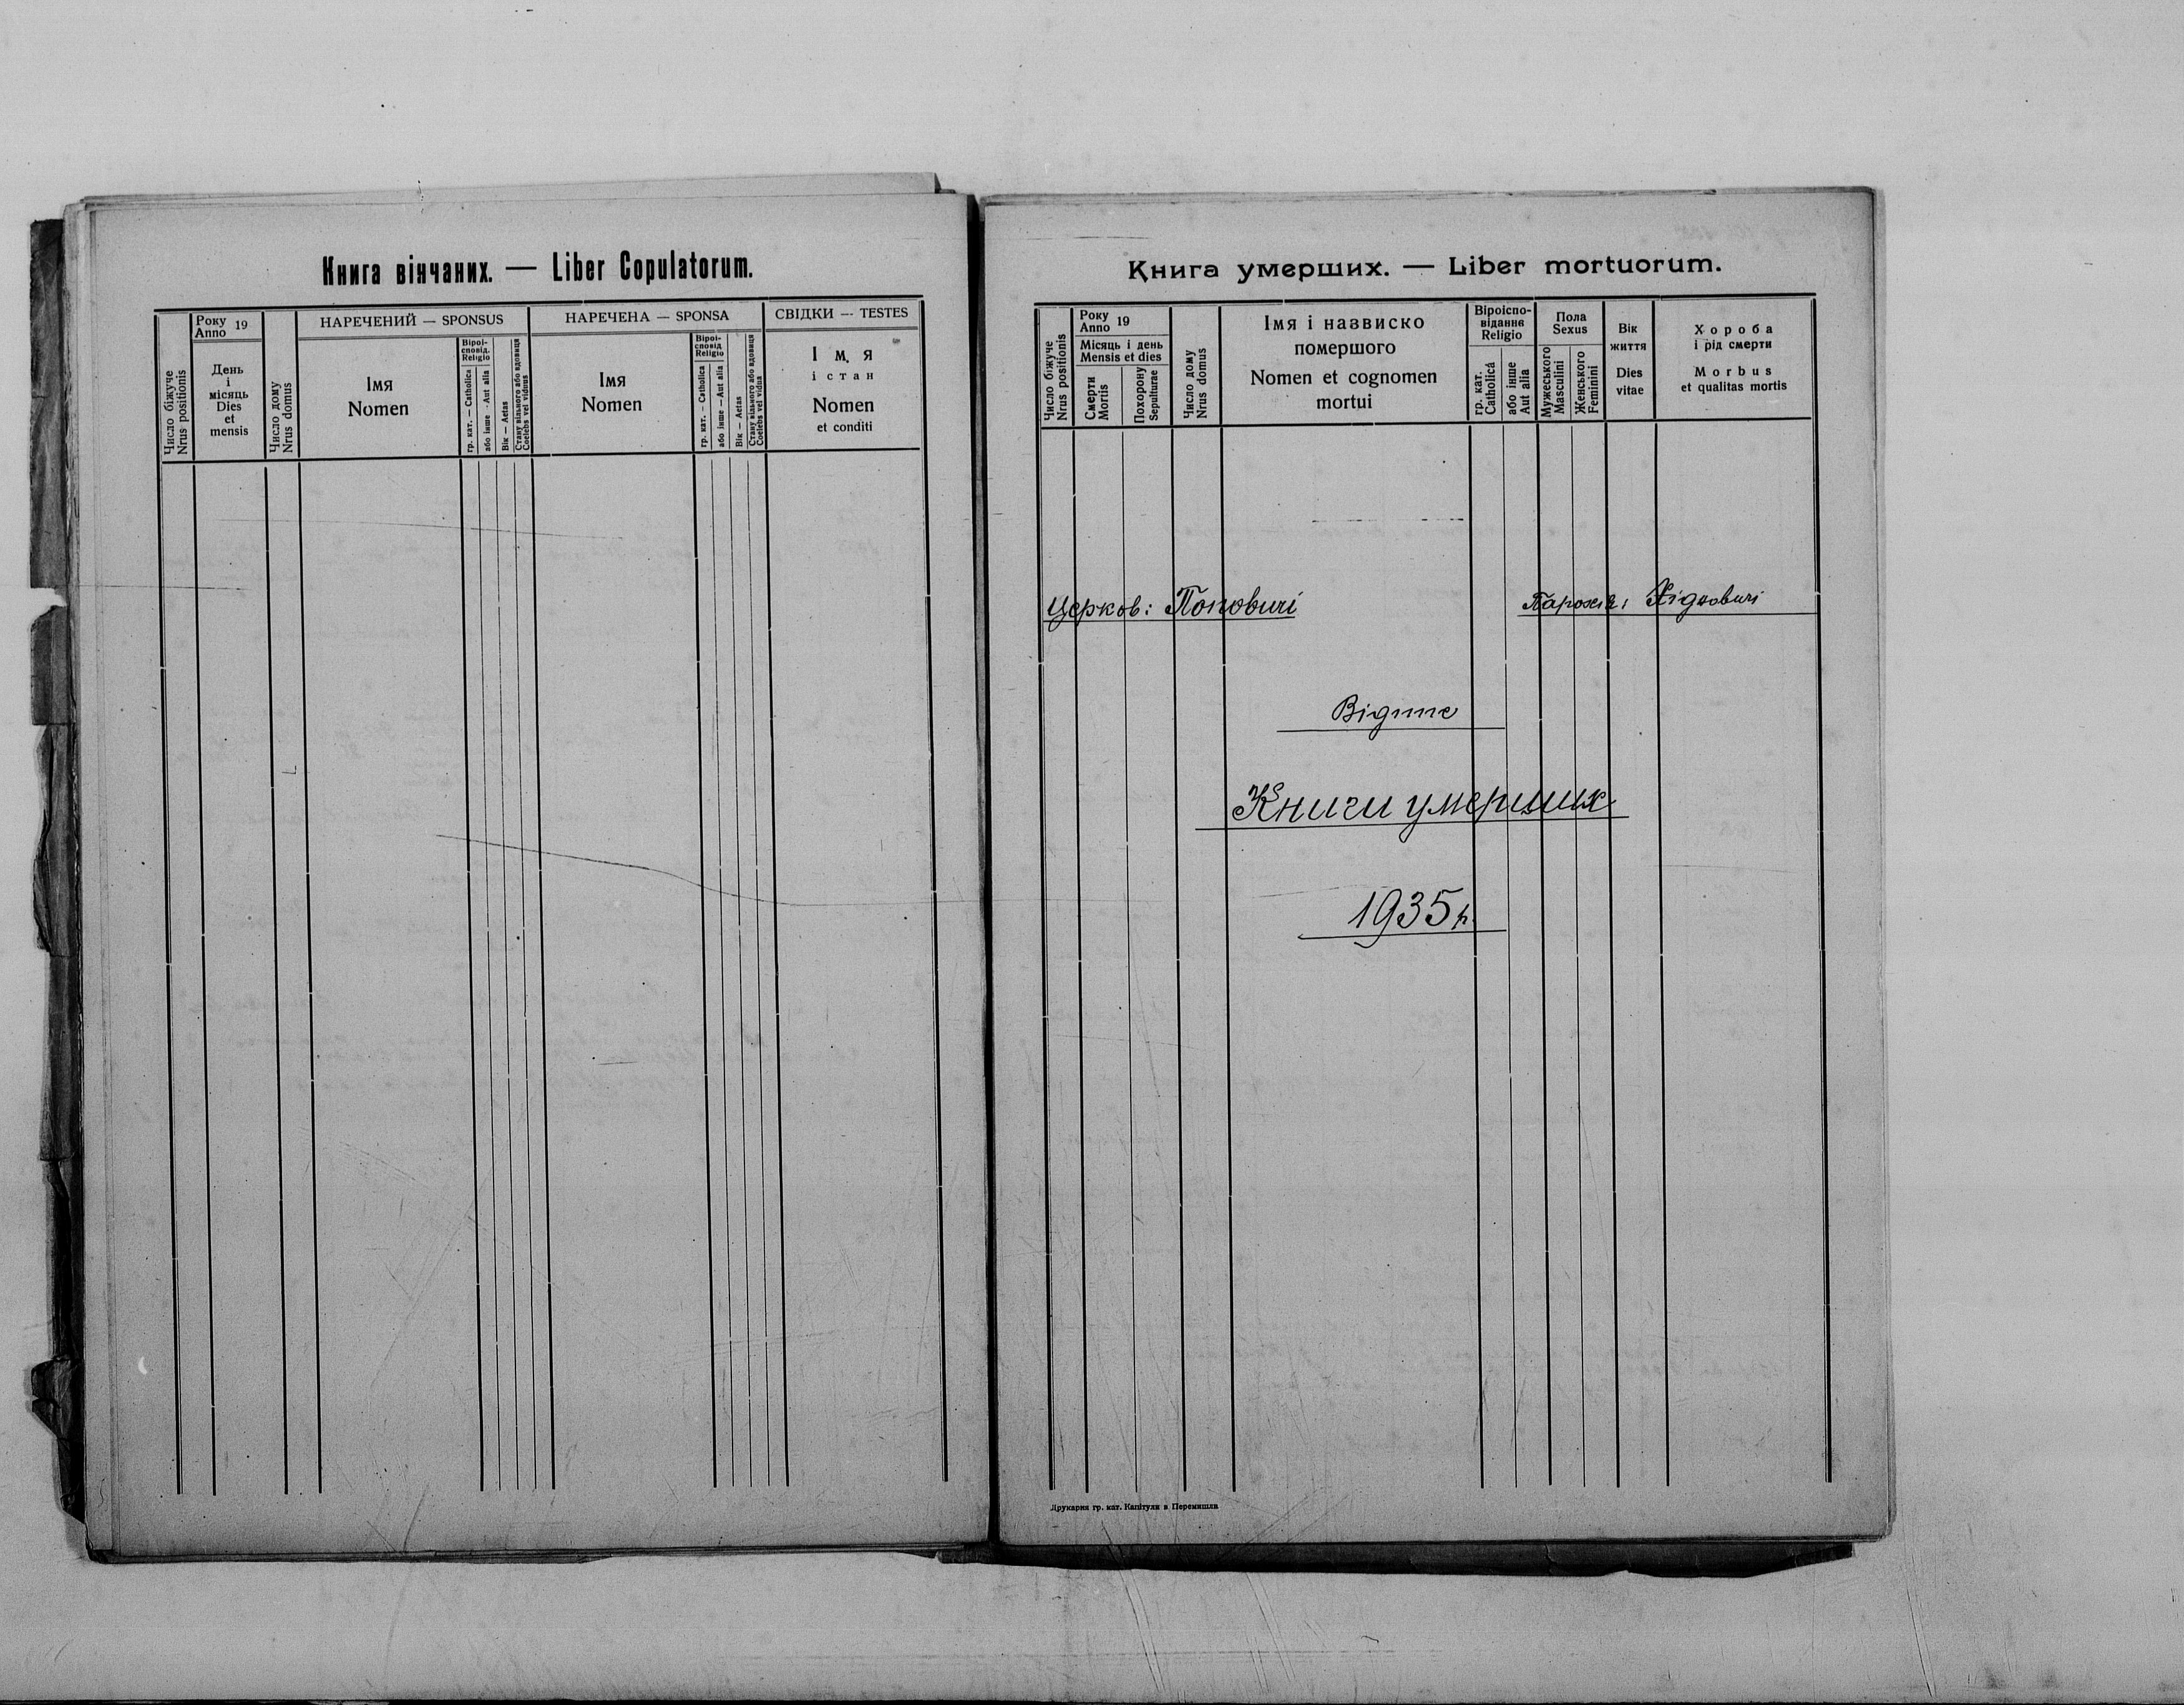 Книга вінчаних. — Liber Copulatorum.
Число біжуче
Nrus positionis
Року
Anno 19
День
і
місяць
Dies
et
mensis
Число дому
Nrus domus
НАРЕЧЕНИЙ — SPONSUS
Імя
Nomen
Віроі-
сповід.
Religio
гр. кат. — Catholica
або інше - Aut alia
Вік — Aetas
Стану вільного або вдовиця
Coelebs vel viduus
НАРЕЧЕНА — SPONSA
Імя
Nomen
Віроі-
сповід
Religio
гр. кат. — Catholica
або інше — Aut alia
Вік — Aetas
Стану вільного або вдовиця
Coelebs vel vidua
СВІДКИ — TESTES
Імя
і стан
Nomen
et conditi
Книга умерших. — Liber mortuorum.
Число біжуче
Nrus positionis
Року
Anno 19
Місяць і день
Mensis et dies
Смерти
Mortis
Похорону
Sepulturae
Число дому
Nrus domus
Імя і назвиско
помершого
Nomen et cognomen
mortui
Віроіспо-
відання
Religio
гр. кат.
Catholica
або інше
Aut alia
Пола
Sexus
Мужеського
Masculini
Женського
Feminini
Вік
життя
Dies
vitae
Хороба
і рід смерти
Morbus
et qualitas mortis
Церков: Поповичі
Парохія: Хідновичі
Відпис
Книги умерших
1935 р.
Друкарня гр. кат. Капітули в Перемишли